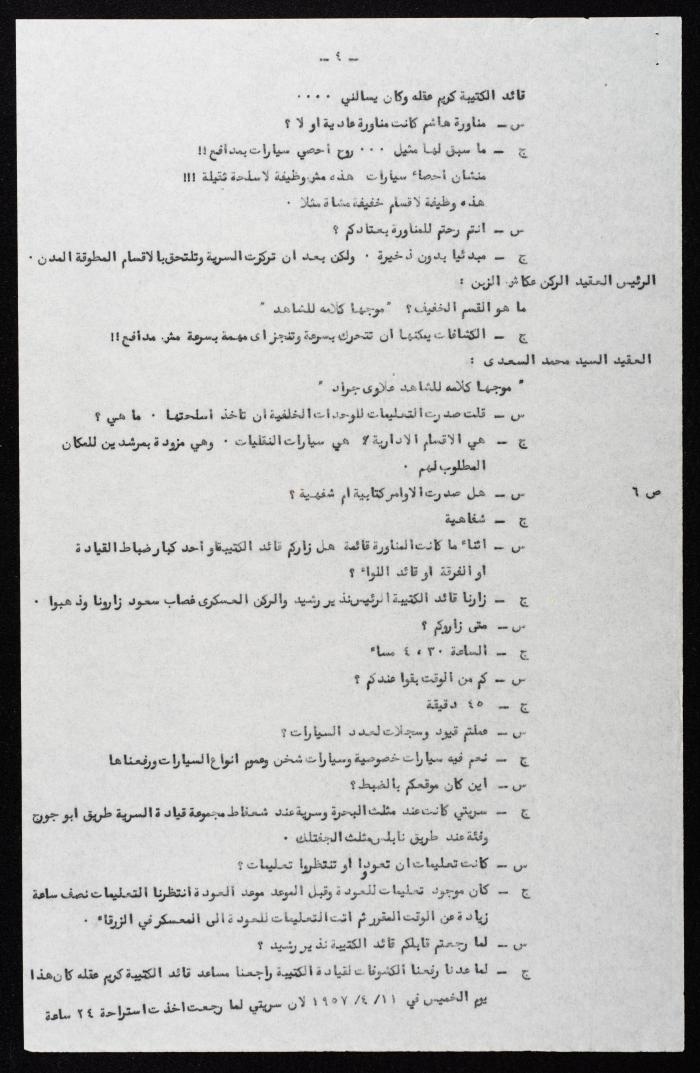 ـ ٤ ـ
قائد الكتيبة كريم عقله وكان يسالني ٠٠٠٠
س ـ مناورة هاشم كانت مناورة عادية او لا ؟
ج ـ ما سبق لها مثيل ٠٠٠ روح أحصي سيارات بمدافع !!
منشان أحصاء سيارات هذه مش وظيفة لاسلحة ثقيلة !!!
هذه وظيفة لاقسام خفيفة مشاة مثلا ٠
س ـ انتم رحتم للمناورة بعتادكم ؟
ج ـ مبدئيا بدون ذخيرة ٠ ولكن بعد ان تركزت السرية وتلتحق بالاقسام المطوقة المدن ٠
الرئيس العقيد الركن عكاش الزبن :
ما هو القسم الخفيف ؟ " موجها كلامه للشاهد "
ج ـ الكشافات يمكنها ان تتحرك بسرعة وتنجز اى مهمة بسرعة مش مدافع !!
العقيد السيد محمد السعدى :
" موجها كلامه للشاهد علاوى جراد "
س ـ قلت صدرت التعليمات للوحدات الخلفية ان تاخذ أسلحتها ٠ ما هي ؟
ج ـ هي الاقسام الادارية هي سيارات النقليات ٠ وهي مزودة بمرشدين للمكان
المطلوب لهم ٠
ص ٦ س ـ هل صدرت الاوامر كتابية ام شفهية ؟
ج ـ شفاهية
س ـ اثناء ما كانت المناورة قائمة هل زاركم قائد الكتيبة او أحد كبار ضباط القيادة
او الفرقة او قائد اللواء ؟
ج ـ زارنا قائد الكتيبة الرئيس نذير رشيد والركن العسكرى قصاب سعود زارونا وذهبوا ٠
س ـ متى زاروكم ؟
ج ـ الساعة ٣٠ ، ٤ مساء
س ـ كم من الوقت بقوا عندكم ؟
ج ـ ٤٥ دقيقة
س ـ عملتم قيود وسجلات لعدد السيارات ؟
ج ـ نعم فيه سيارات خصوصية وسيارات شحن وعموم انواع السيارات ورفعناها
س ـ اين كان موقعكم بالضبط ؟
ج ـ سريتي كانت عند مثلث البحرة وسرية عند شعفاط مجموعة قيادة السرية طريق ابو جورج
وفئة عند طريق نابلس مثلث الجفتلك ٠
س ـ كانت تعليمات ان تعودوا او تنتظروا تعليمات ؟
ج ـ كان موجود تعليمات للعودة وقبل الموعد موعد العودة انتظرنا التعليمات نصف ساعة
زيادة عن الوقت المقرر ثم اتت التعليمات للعودة الى المعسكر في الزرقاء ٠
س ـ لما رجعتم قابلكم قائد الكتيبة نذير رشيد ؟
ج ـ لما عدنا رفعنا الكشوفات لقيادة الكتيبة راجعنا مساعد قائد الكتيبة كريم عقله كان هذا
يوم الخميس في ١١ /٤/ ١٩٥٧ لان سريتي لما رجعت اخذت استراحة ٢٤ ساعة